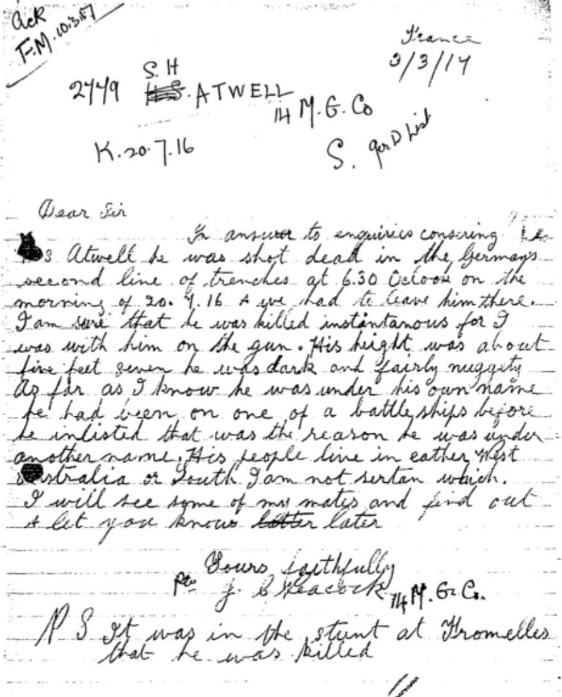 Ack
F.M. 10.3.17
France
3/3/17
S. H
2779 H S. ATWELL
14 M. G. Co
K. 20.7.16
S. Ger D List
Dear Sir
In answer to enquiries consering
S Atwell he was shot dead in the Germans
second line of trenches at 6.30 Oclock on the
morning of 20.7.16 & we had to leave him there.
I am sure that he was killed instantanous for I
was with him on the gun. His height was about
five feet seven he was dark and fairly nuggety
As far as I know he was under his own name
he had been on one of a battleships before
he inlisted that was the reason he was under
another name. His people live in eather West
stralia or South I am not sertan which.
I will see some of my mates and find out
& let you know latter later
Yours faithfully
Pte J. C Peacock 14 M. G. C.
P S It was in the stunt at Fromelles
that he was killed